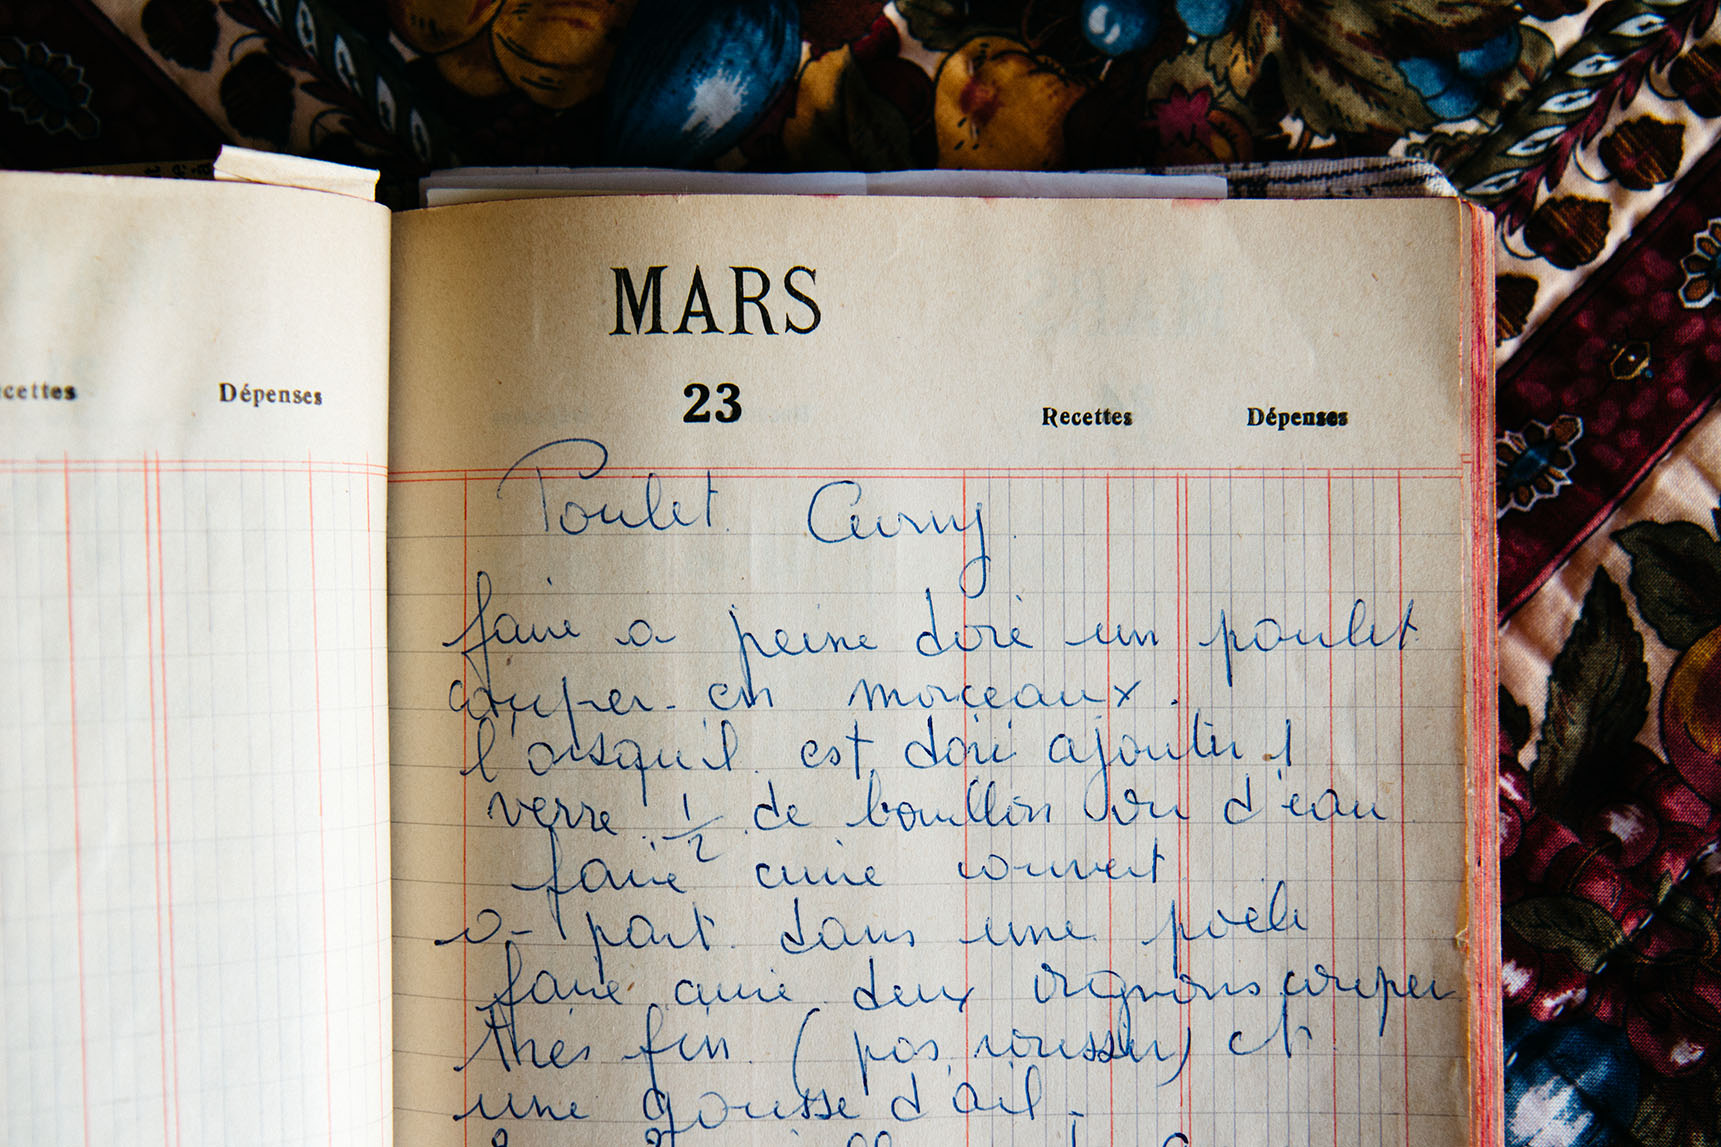 Dépenses
MARS
23
Recettes Dépenses
Poulet Curry
faire a peine doré un poulet
couper en morceaux.
l'orsqu'il est doré ajouter 1
verre 1/2 de bouillon ou d'eau
faire cuire couvert
a part dans une poele
faire cuire deux oignons couper
thrés fin (pas roussir) et
une gousse d'ail.